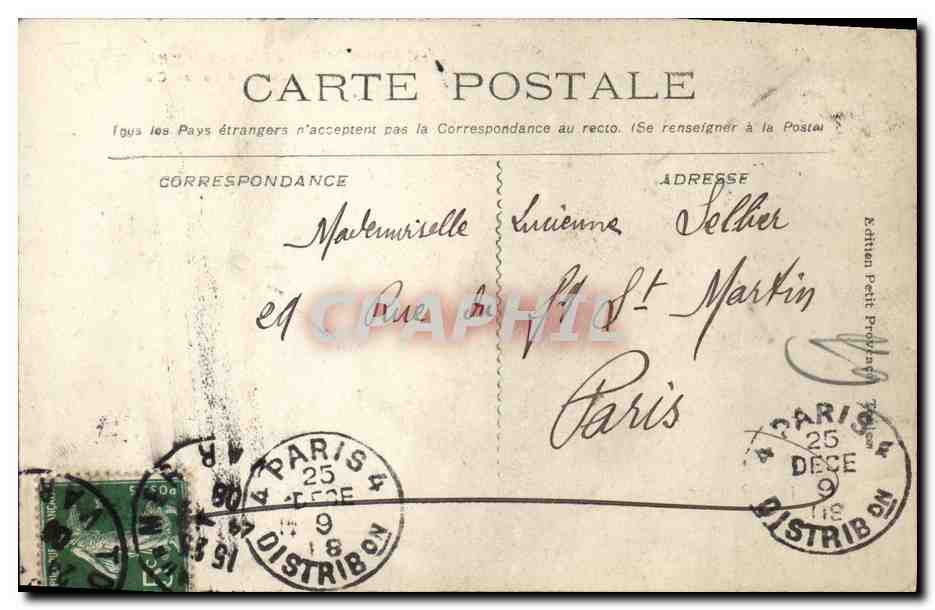 CARTE POSTALE
Tous les Pays étrangers n'acceptent pas la Correspondance au recto. (Se renseigner à la Poste)
CORRESPONDANCE
ADRESSE
Mademoiselle Lucienne Sellier
Rue du Fg St Martin
Paris
Edition Petit Provençal
CPAPHIL
PARIS 4
25
DECE
9
18
DISTRIB ON
4
PARIS 4
25
DECE
9
DISTRIB ON
4
08